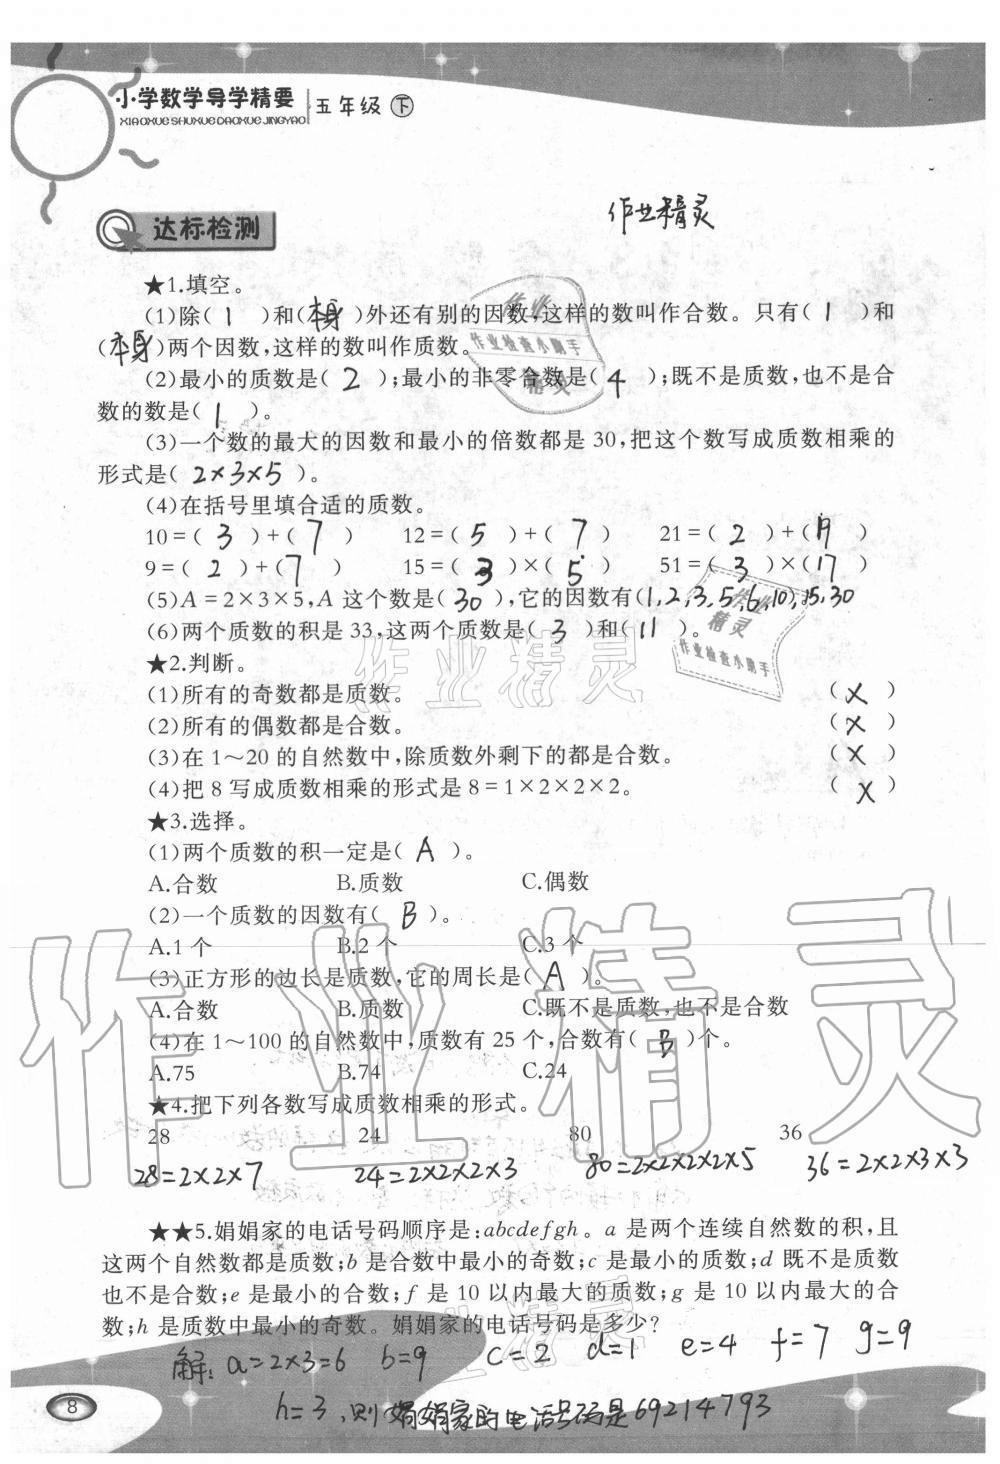 小学数学导学精要 五年级 下
XIAOXUE SHUXUE DAOXUE JINGYAO
作业精灵
达标检测
★1.填空。
(1)除( 1 )和(本身)外还有别的因数,这样的数叫作合数。只有( 1 )和
(本身)两个因数,这样的数叫作质数。
(2)最小的质数是( 2 );最小的非零合数是( 4 );既不是质数,也不是合
数的数是( 1 )。
(3)一个数的最大的因数和最小的倍数都是 30,把这个数写成质数相乘的
形式是( 2×3×5 )。
(4)在括号里填合适的质数。
10=( 3 )+( 7 ) 12=( 5 )+( 7 ) 21=( 2 )+( 19 )
9=( 2 )+( 7 ) 15=( 3 )×( 5 ) 51=( 3 )×( 17 )
(5)A=2×3×5,A 这个数是( 30 ),它的因数有(1,2,3,5,6,10),15,30
(6)两个质数的积是 33,这两个质数是( 3 )和( 11 )。
作业
作业检查小助手
精灵
作业
精灵
作业检查小助手
作业精灵
★2.判断。
(1)所有的奇数都是质数。 ( × )
(2)所有的偶数都是合数。 ( × )
(3)在 1～20 的自然数中,除质数外剩下的都是合数。 ( × )
(4)把 8 写成质数相乘的形式是 8=1×2×2×2。 ( × )
★3.选择。
(1)两个质数的积一定是( A )。
A.合数 B.质数 C.偶数
(2)一个质数的因数有( B )。
A.1 个 B.2 个 C.3 个
(3)正方形的边长是质数,它的周长是( A )。
A.合数 B.质数 C.既不是质数,也不是合数
(4)在 1～100 的自然数中,质数有 25 个,合数有( B )个。
A.75 B.74 C.24
作业精灵
★4.把下列各数写成质数相乘的形式。
28 24 80 36
28=2×2×7 24=2×2×2×3 80=2×2×2×2×5 36=2×2×3×3
★★5.娟娟家的电话号码顺序是:abcdefgh。a 是两个连续自然数的积,且
这两个自然数都是质数;b 是合数中最小的奇数;c 是最小的质数;d 既不是质数
也不是合数;e 是最小的合数;f 是 10 以内最大的质数;g 是 10 以内最大的合
数;h 是质数中最小的奇数。娟娟家的电话号码是多少?
作业精灵
解:a=2×3=6 b=9 c=2 d=1 e=4 f=7 g=9
h=3,则娟娟家的电话号码是69214793
8